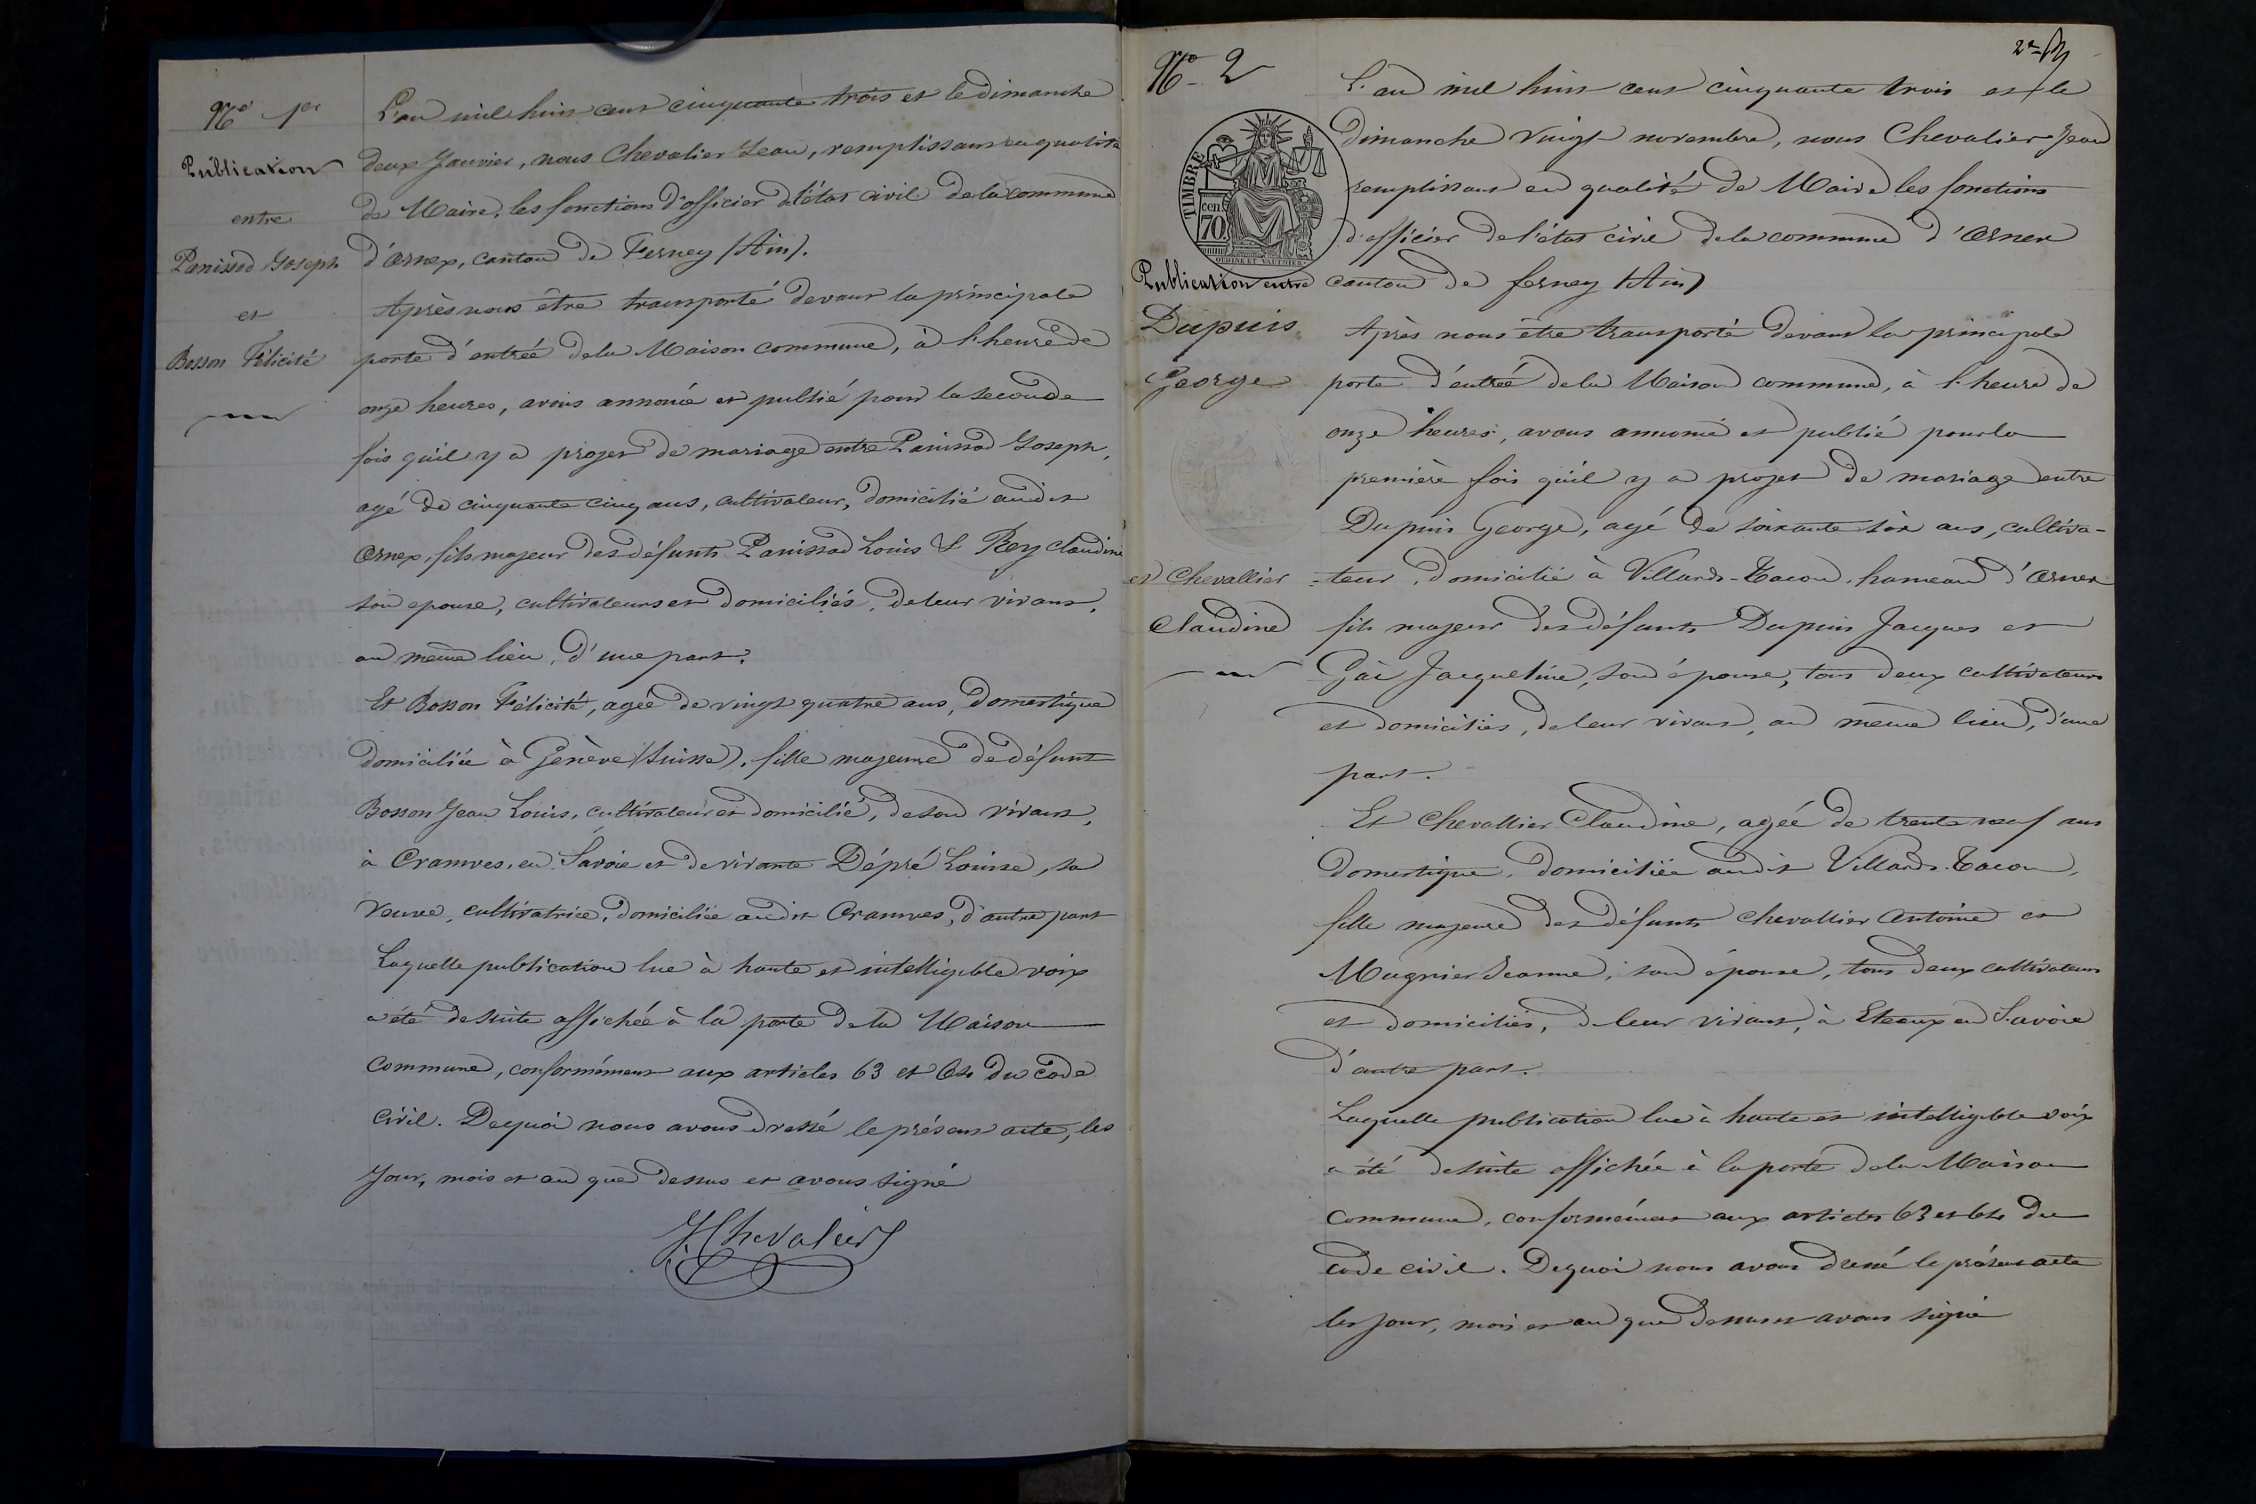 No 1er
Publication
entre
Panissod Joseph
et
Bosson Félicité
L'an mil huit cent cinquante trois et le dimanche
deux Janvier, nous Chevalier Jean, remplissant en qualité
de Maire, les fonctions d'officier de l'état civil de la commune
d'Ornex, canton de Ferney (Ain).
Après nous être transporté devant la principale
porte d'entrée de la Maison commune, à l'heure de
onze heures, avons annoncé et publié pour la seconde
fois qu'il y a projet de mariage entre Panissod Joseph,
agé de cinquante cinq ans, cultivateur, domicilié audit
Ornex, fils majeur des défunts Panissod Louis & Rey Claudine
son epouse, cultivateurs et domiciliés, de leur vivant,
au même lieu, d'une part.
Et Bosson Félicité, agée de vingt quatre ans, domestique
domiciliée à Genève (Suisse), fille majeure de défunt
Bosson Jean Louis, cultivateur et domicilié, de son vivant,
à Cranves, en Savoie et de vivante Dépré Louise, sa
veuve, cultivatrice, domiciliée audit Cranves, d'autre part
Laquelle publication lue à haute et intelligible voix
a été de suite affichée à la porte de la Maison
commune, conformément aux articles 63 et 64 du code
civil. De quoi nous avons dressé le présent acte, les
Jour, mois et an que dessus et avons signé
J Chevalier
2e
No 2
TIMBRE
cen
70
Publication entre
Dupuis
George
et Chevallier
Claudine
L'an mil huit cent cinquante trois et le
dimanche vingt novembre, nous Chevalier Jean
remplissant en qualité de Maire les fonctions
d'officier de l'état civil de la commune d'Ornex
canton de ferney (Ain)
Après nous être transporté devant la principale
porte d'entrée de la Maison commune, à l'heure de
onze heures, avons annoncé et publié pour la
première fois qu'il y a projet de mariage entre
Dupuis George, agé de soixante six ans, cultiva-
teur, domicilié à Villards-Tacon, hameau d'Ornex
fils majeur des défunts Dupuis Jacques et
Gai Jacqueline, son épouse, tous deux cultivateurs
et domiciliés, de leur vivant, au même lieu, d'une
part.
Et Chevallier Claudine, agée de trente neuf ans
domestique, domiciliée audit Villards-Tacon,
fille majeure des défunts Chevallier Antoine et
Mugnier Jeanne, son épouse, tous deux cultivateurs
et domiciliés, de leur vivant, à Eteaux en Savoie
d'autre part.
Laquelle publication lue à haute et intelligible voix
a été de suite affichée à la porte de la Maison
commune, conformément aux articles 63 et 64 du
code civil. De quoi nous avons dressé le présent acte
les jour, mois et an que dessus et avons signé